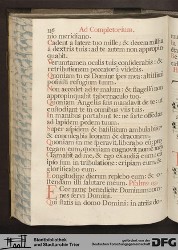 Ad Completorium.
nio meridiano.
Cadent a latere tuo mille, & decem millia
à dextris tuis: ad te autem non appropin-
quabit.
Verumtamen oculis tuis considerabis: &
retributionem peccatorum videbis.
Quoniam tu es Domine spes mea: altissimũ
posuisti refugium tuum.
Non accedet ad te malum: & flagellũ non
appropinquabit tabernaculo tuo.
Quoniam Angelis suis mandavit de te: ut
custodiant te in omnibus viis tuis.
In manibus portabunt te: ne forte offendas
ad lapidem pedem tuum.
Super aspidem & basiliscum ambulabis:
& conculcabis leonem & draconem.
Quoniam in me speravit, liberabo eum: pro-
tegam eum, quoniam cognovit nomen meũ
Clamabit ad me, & ego exaudiam eum: cũ
ipso sum in tribulatione: eripiam eum &
glorificabo eum.
Longitudine dierum replebo eum: & os-
tendam illi salutare meum.
Ecce nunc benedicite Dominum: om-
nes servi Domini.
Qui statis in domo Domini: in atriis do-
Stadtbibliothek
und Stadtarchiv Trier
DFG